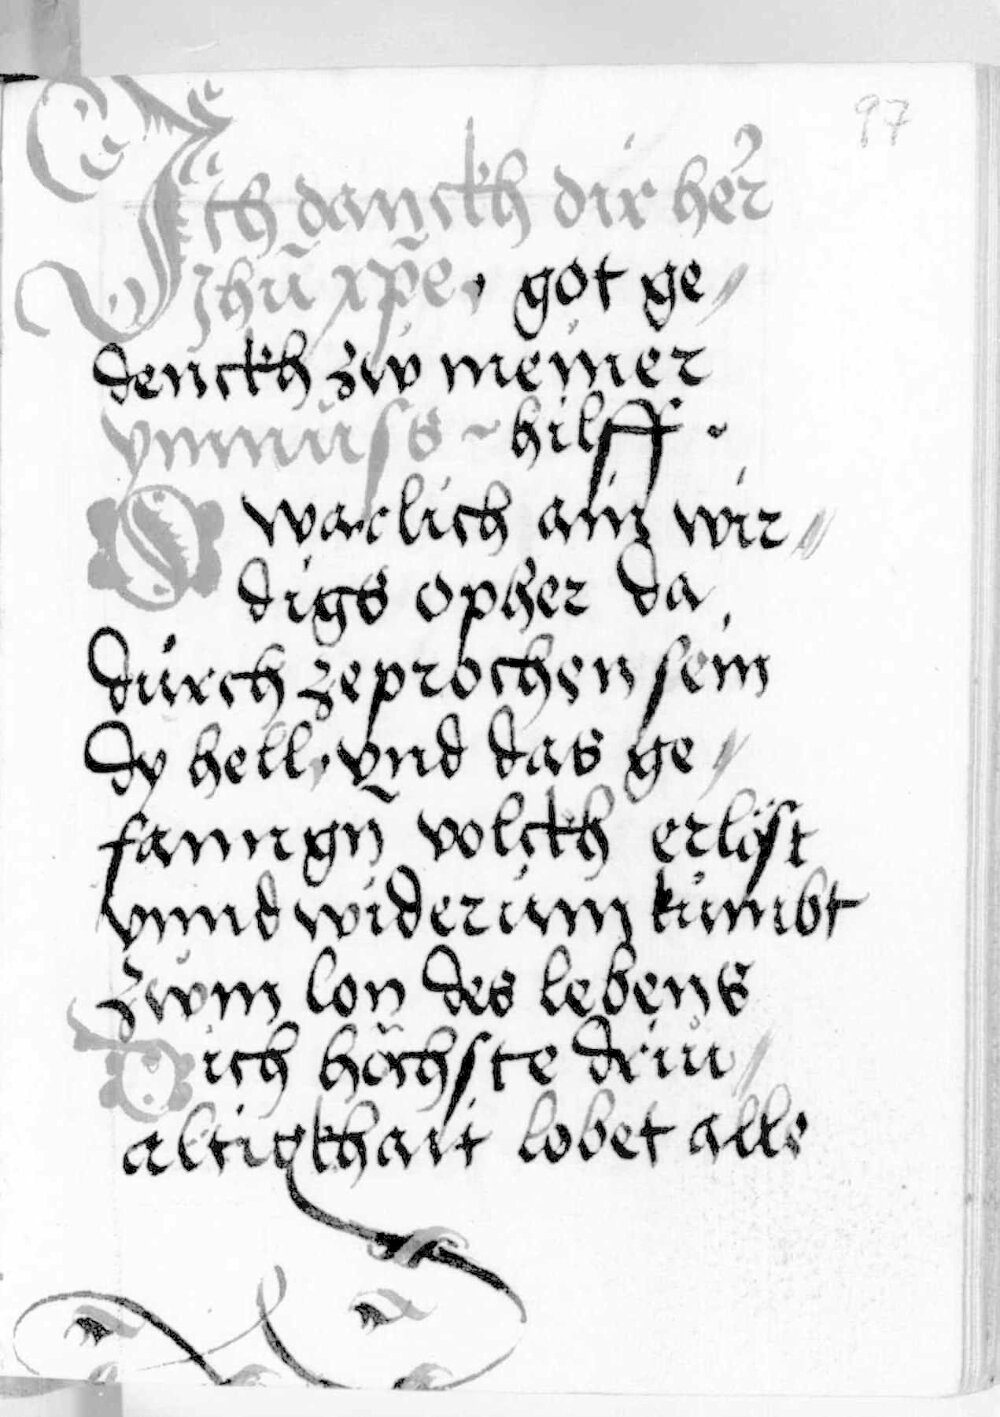 97
Ich danckh dir her
Jhū xp̄e, got ge⸗
denckh zw meiner
ymnus ~ hilff .
O warlich ain wir⸗
digs opher da
dürch zeprochen sein
dy hell, vnd das ge⸗
fanngn̄ volckh erlöst
vnnd widerum kumbt
zwm lon des lebens
Dich höchste driu⸗
altigkhait lobet alle